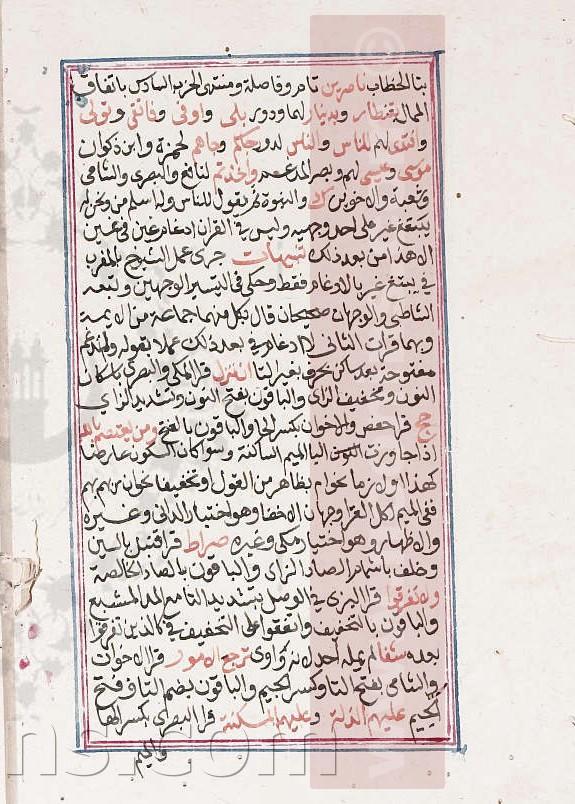 بتا الخطاب ناصرين تام وفاصلة ومنتهى الحزب السادس باتفاق
الممال بقنطار وبدينار لهما ودور بلى واوفى واتقى وتولى
وافتدى لهم للناس والناس لدور جاءكم وجاءهم لحمزة وابن ذكوان
موسى وعيسى لهم وبصر المدغم واخذتم لنافع والبصري والشامي
وشعبة والاخوين ك والنبوة ثم يقول للناس وله اسلم من ونحن له
يبتغ غير على احد وجهيه وليس في القران ادغام غين في غين
الا هذا من بعد ذلك تنبيهات جرى عمل الشيوخ بالمغرب
في يبتغ غير بالادغام فقط وحكى في التيسير الوجهين وتبعه
الشاطبي والوجهان صحيحان قال بكل منهما جماعة من الايمة
وبهما قرات الثاني لا ادغام في بعد ذلك عملا بقوله ولم تدغم
مفتوحة بعد ساكن بحرف بغير التا تنزل قرا المكي والبصري باسكان
النون وتخفيف الزاي والباقون بفتح النون وتشديد الزاي
حج قرا حفص والاخوان بكسر الحا والباقون بالفتح ومن يعتصم بالله
اذا جاورت البا الميم الساكنة وسوا كان السكون عارضا
كهذا او لازما نحو ام بظاهر من القول او تخفيفا نحو ان ربهم بهم
ففي الميم لكل القرا وجهان الاخفا وهو اختيار الداني وغيره
والاظهار وهو اختيار مكي وغيره صراط قرا قنبل بالسين
وخلف باشمام الصاد الزاي والباقون بالصاد الخالصة
ولا تفرقوا قرا البزي في الوصل بتشديد التا مع المد المشبع
والباقون بالتخفيف واتفقوا على التخفيف في كالذين تفرقوا
بعده شفا لم يمله احد لانه واوي ترجع الامور قرا الاخوان
والشامي بفتح التا وكسر الجيم والباقون بضم التا وفتح
الجيم عليهم الذلة وعليهم المسكنة قرا البصري بكسر الها
والميم
ns.com